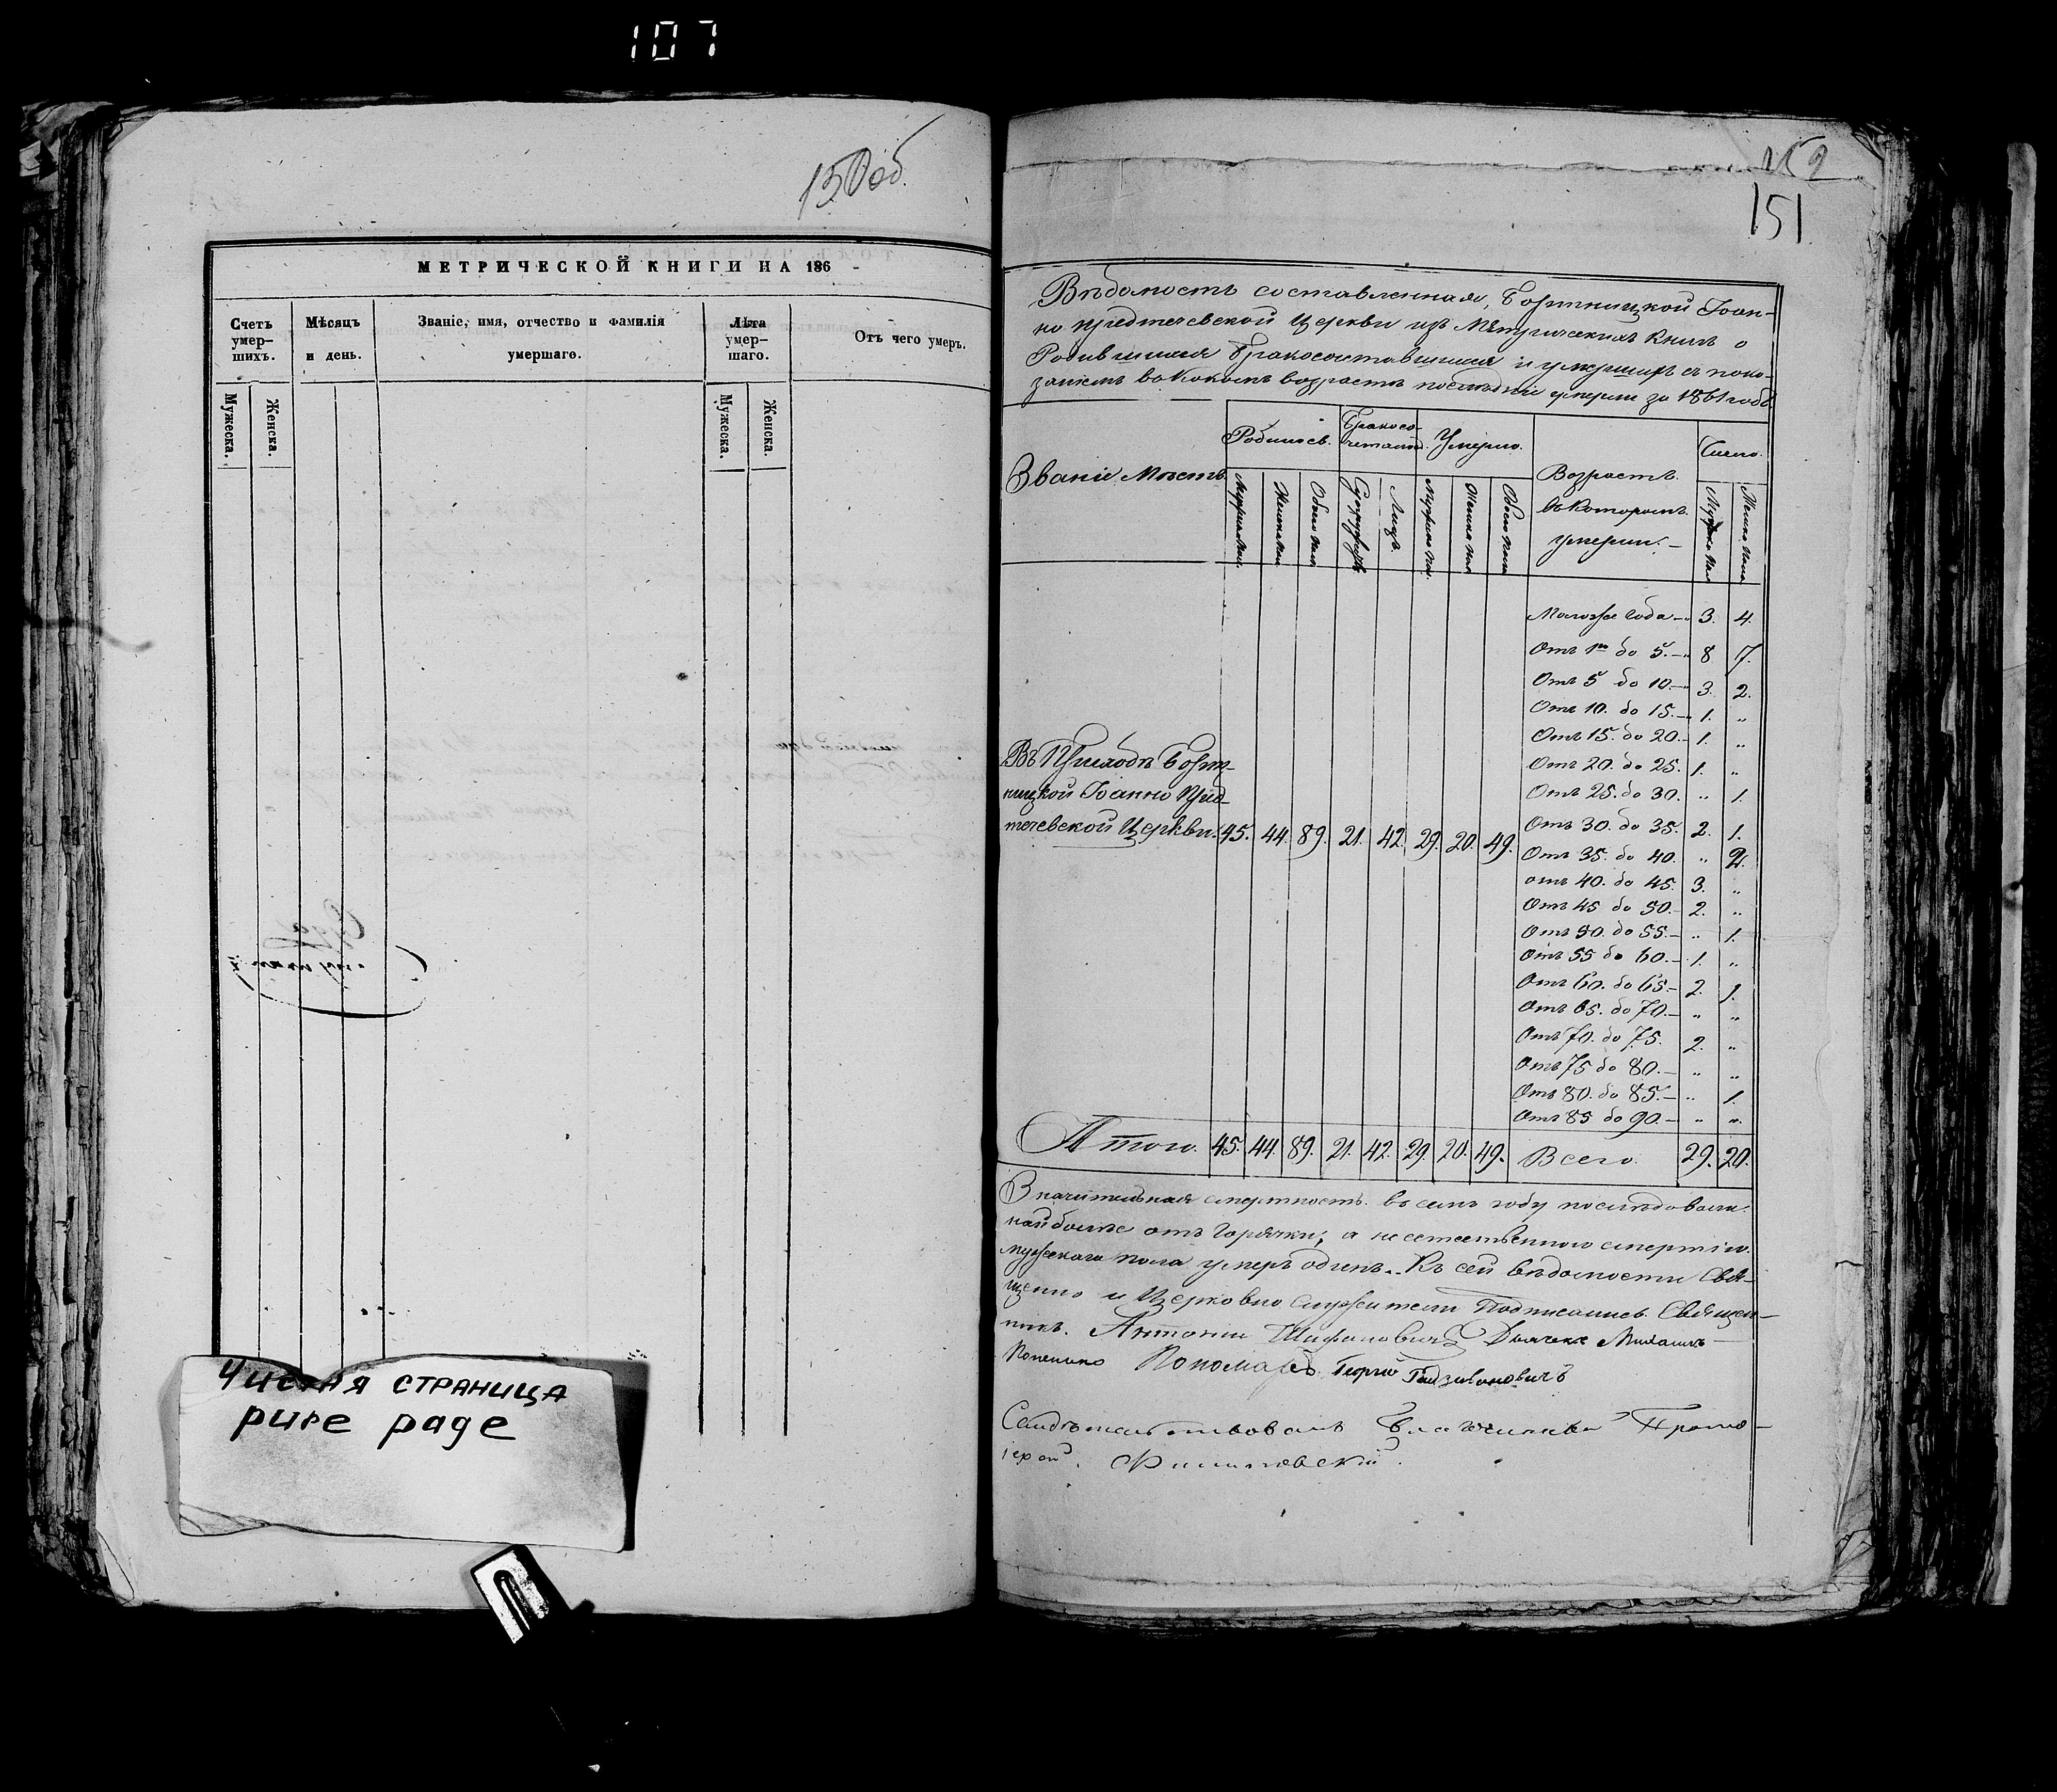 107
150об.
МЕТРИЧЕСКОЙ КНИГИ НА 186
Счетъ умер-шихъ.
Мѣсяцъ и день.
Званіе, имя, отчество и фамилія умершаго.
Лѣта умер-шаго.
Отъ чего умеръ.
Мужеска.
Женска.
Мужеска.
Женска.
Чистая страница
pure page
151
Вѣдомость составленная, Бортницкой Іоан-
но предтечевской Церкви изъ Метрическихъ Книгъ о
Родившихся Бракосочетавшихся и умершихъ съ пока-
заніемъ въ Какомъ возрастѣ послѣдніе умерли за 1861 годъ
Званіе Мѣстъ.
Родилось.
Бракосо-
четалось.
Умерло.
Возрастъ
въ Которомъ
умерли.
Число.
Мужска Пола
Женска Пола
Обоего Пола
Супружествъ
Лицъ.
Мужска По.
Женска Пол
Обоего Пола
Мужска Пол
Женска Пола
Моложе Года 3. 4.
Отъ 1го до 5. 8 7.
Отъ 5 до 10. 3. 2.
Отъ 10. до 15. 1. "
Отъ 15. до 20. 1. "
Отъ 20. до 25. 1. "
Отъ 25. до 30. " 1.
Отъ 30. до 35. 2. 1.
Отъ 35. до 40. " 2.
отъ 40. до 45. 3. "
Отъ 45 до 50. 2. "
Отъ 50. до 55. " 1.
Отъ 55 до 60. 1. "
Отъ 60. до 65. 2. 1.
Отъ 65. до 70. " "
Отъ 70. до 75. 2. "
Отъ 75 до 80. " "
Отъ 80. до 85. " 1.
Отъ 85 до 90. " "
Въ Приходѣ Борт-
ницкой Іоанно Пред-
течевской Церкви. 45. 44. 89. 21. 42. 29. 20. 49.
Итого. 45. 44. 89. 21. 42. 29. 20. 49. Всего. 29. 20.
Значительная смертность въ семъ году послѣдовала
наиболѣе отъ Горячки, а неестественною смертію
мужскаго пола умеръ одинъ. Къ сей вѣдомости Свя-
щенно и Церковно служители Подписались. Священ-
никъ. Антоній Дьячекъ Михаилъ
Пономарь Георгій
Свидѣтельствовалъ Благочинный Прото-
іерей.